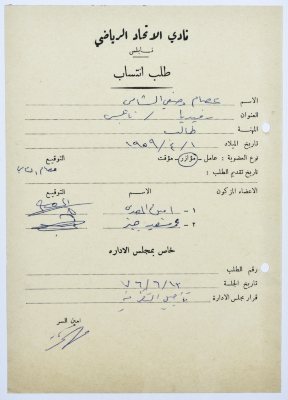 نادي الاتحاد الرياضي
نابلس
طلب انتساب
الاسم عصام وصفي الشامي
العنوان رفيديا / نابلس
المهنة طالب
تاريخ الميلاد ١ / ٤ / ١٩٥٩
نوع العضوية : عامل - مؤازر - مؤقت التوقيع
تاريخ تقديم الطلب :
الاعضاء المزكون الاسم التوقيع
١ - امين
٢ - محمد سعيد
خاص بمجلس الاداره
رقم الطلب
تاريخ الجلسة ٧٦/٦/١٢
قرار مجلس الادارة
امين السر